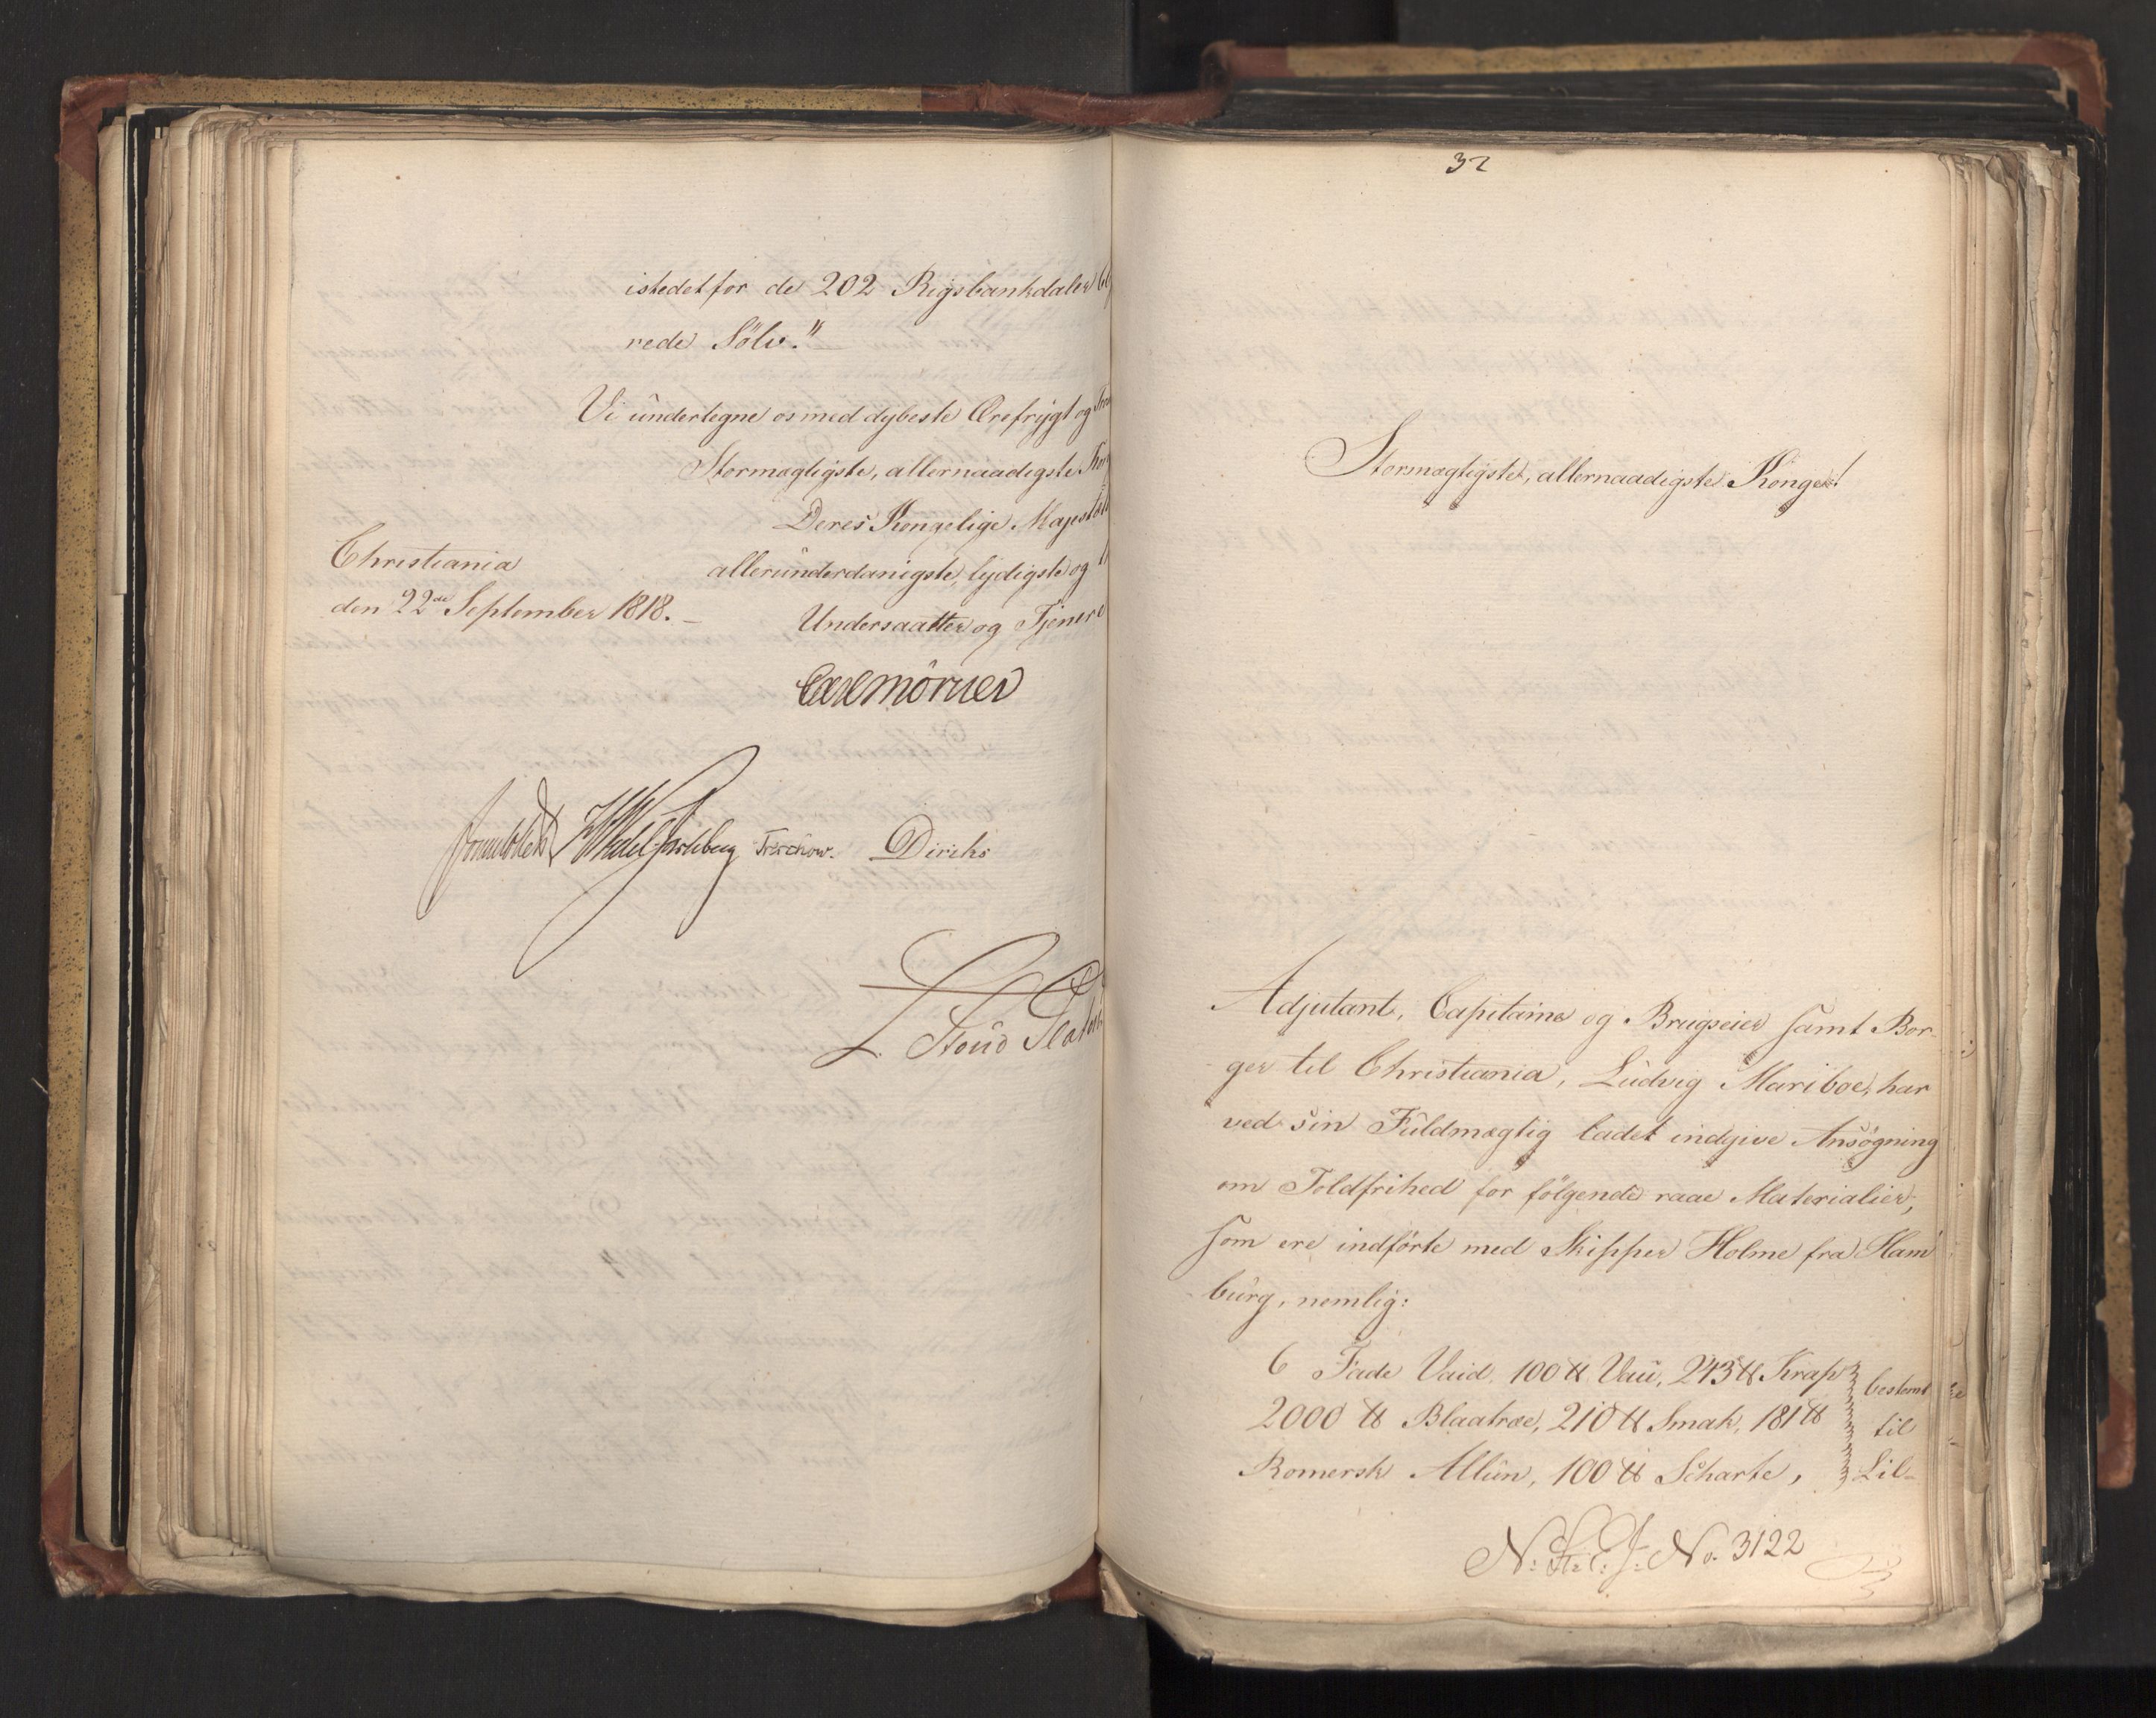 istedetfor de 202 Rigsbankdaler
rede Sölv."
Vi undertegne os med dybeste Ærefrygt og
Stormægtigste, allernaadigste
Deres Kongelige Majestæts
allerunderdanigste, lydigste og
Christiania
den 22de September 1818.
Undersaatter og Tjenere
Carl Mörner
Treschow. Diriks
32
Stormægtigste, allernaadigste Konge!
Adjutant, Capitaine og Brugseier samt Bor-
ger til Christiania, Ludvig Mariboe, har
ved sin Fuldmægtig ladet indgive Ansögning
om Toldfrihed for fölgende raae Materialier,
som ere indförte med Skipper Holme fra Ham
burg, nemlig:
6 Fade Vaid, 100 ℔ Vau, 243 ℔ Krap
2000 ℔ Blaatræe, 210 ℔ Smak, 181 ℔
Romersk Allun, 100 ℔ Scharte,
bestemt
til
Lil-
No. 3122